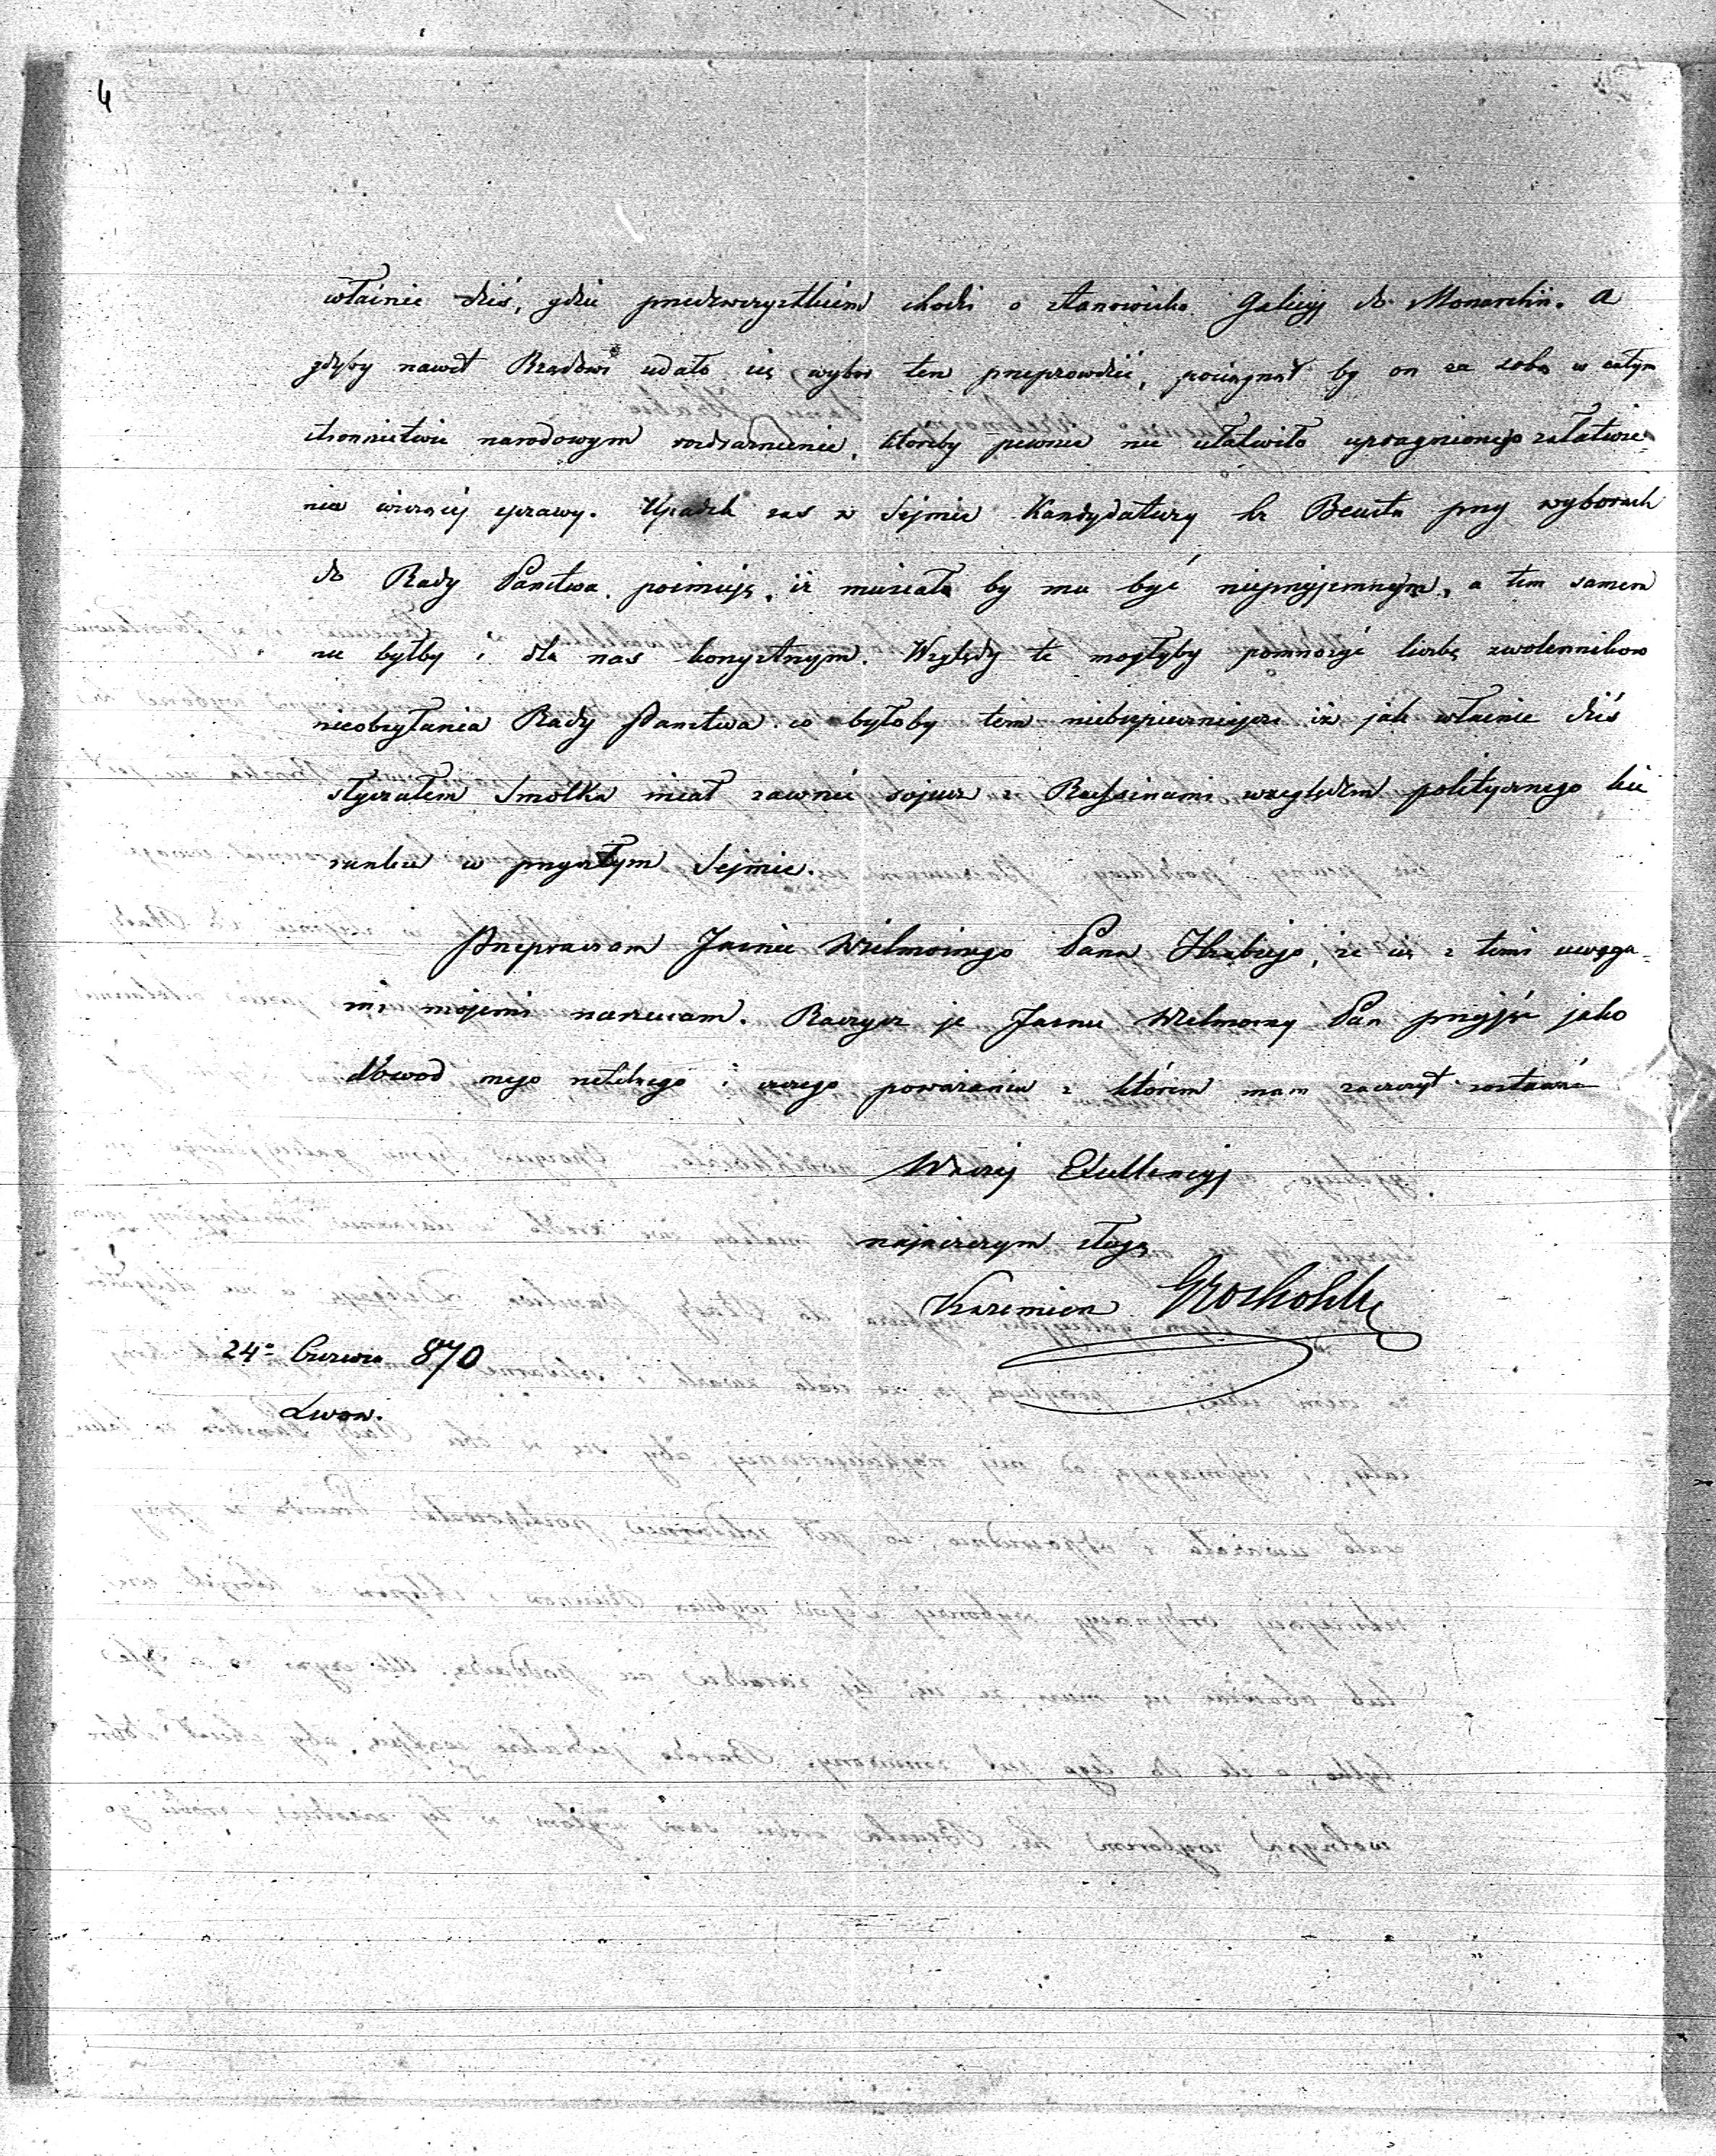 4
właśnie dziś, gdzie przedewszystkiem chodzi o stanowisko Galicyj do Monarchii. A
gdyby nawet Rządowi udało się wybor ten przeprowadzić, pociągnął by on za sobą w całym
stronnictwie narodowym rozdraznienie, ktoreby pewnie nie ułatwiło upragnionego załatwie-
nia sprawy. Upadek zas w Sejmie Kandydatury hr Beusta przy wyborach
do Rady Państwa, poimuję, iż musiała by mu być nieprzyjemnym, a tem samem
nie byłby i dla nas korzystnym. Względy te mogłyby pomnożyć liczbę zwolennikow
nieobsyłania Rady Państwa. co byłoby tem niebezpieczniejsze iż jak właśnie dziś
słyszałem Smolka miał zawrzeć sojusz z Russinami względem politycznego kie
runku w przyszłym Sejmie.
Przepraszam Jaśnie Wielmożnego Pana Hrabiego, że się z temi uwaga-
mi mojemi narzucam. Raczysz je Jasnie Wielmożny Pan przyjąć jako
dowod mego i czczego poważania z którem mam zaszczyt zostawać
Waszej Excellencyj
najniższym sługą
Kazimierz Grocholski
24o Czerwca 870
Lwow.